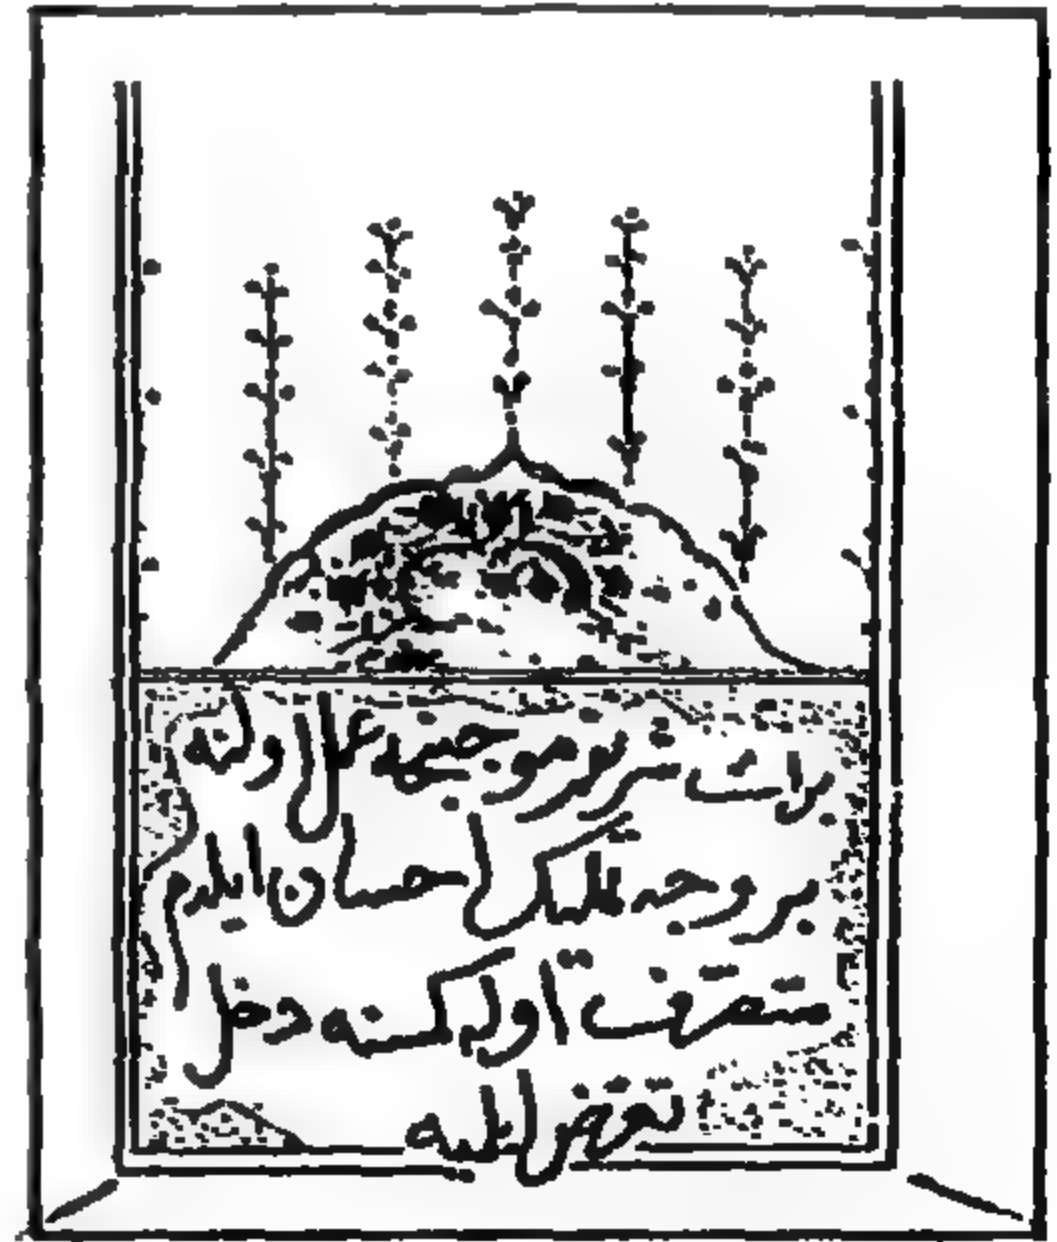 برات موجبجه عمل اولنه
بر وجه تمليك احسان ايلدم
متصرف اوله كسنه دخل
تعرض ايليه